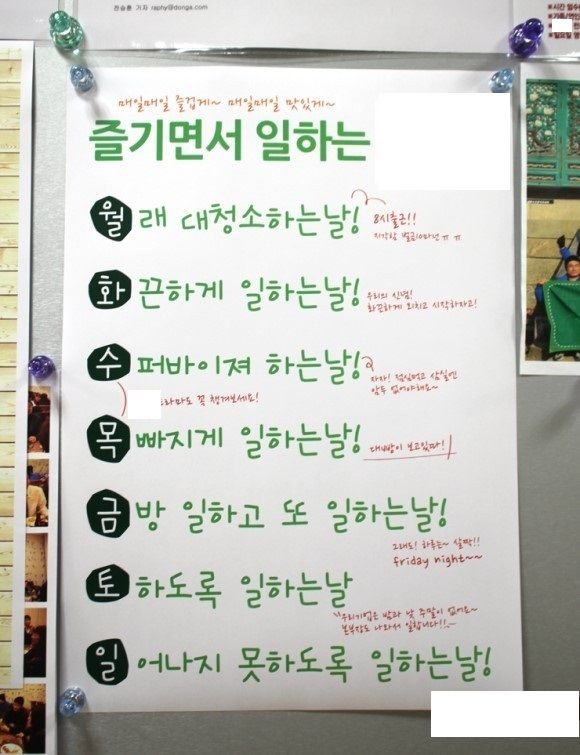 전승훈 기자 raphy@donga.com
매일매일 즐겁게~ 매일매일 맛있게~
즐기면서 일하는
월래 대청소하는날!
8시출근!!
지각함 벌금10마넌 ㅠ ㅠ
화끈하게 일하는날!
우리의 신념!
화끈하게 외치고 시작하자고!
수퍼바이져 하는날!
자자! 점심먹고 삼실엔
암두 없어야해요~
드라마도 꼭 챙겨보세요!
목빠지게 일하는날!
대빵이 보고있따!
금방 일하고 또 일하는날!
그래도! 하루는~ 살짝!!
friday night~~
토하도록 일하는날
우리기업은 밤과 낮 주말이 없어요~
본부장도 나와서 일합니다!!
일어나지 못하도록 일하는날!